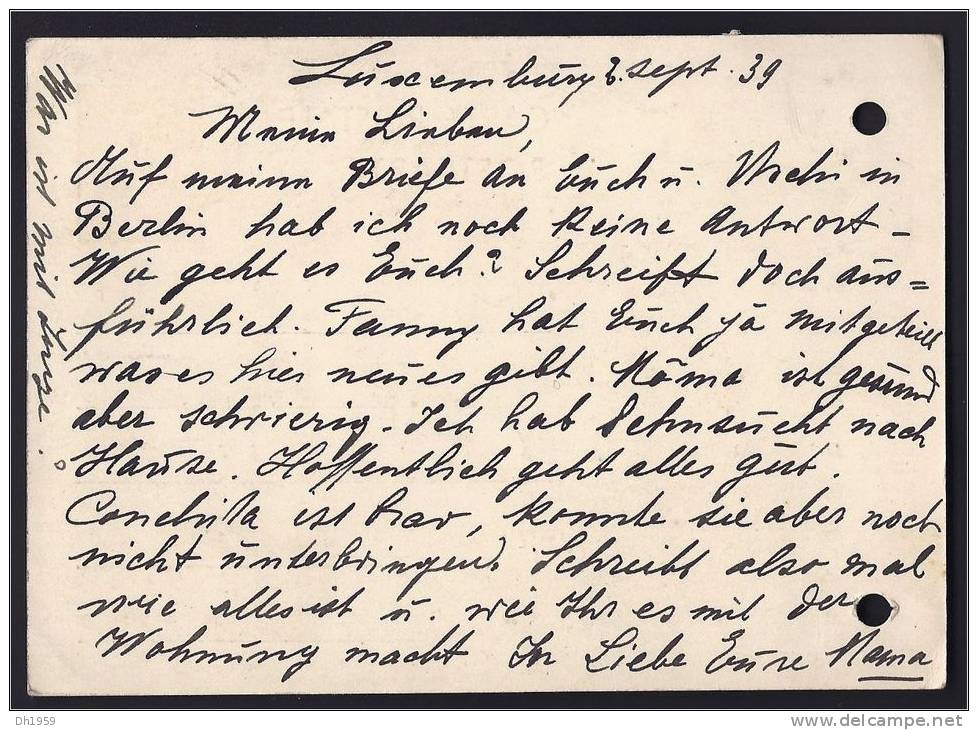 Luxemburg 2. Sept. 39
Meine Lieben,
Auf meine Briefe an Euch u. in
Berlin hab ich noch keine Antwort –
Wie geht es Euch? Schreibt doch aus=
führlich. Fanny hat Euch ja mitgeteilt
was es hier neues gibt. Mama ist gesund
aber schwierig. Ich hab Sehnsucht nach
Hause. Hoffentlich geht alles gut.
Conchita ist brav, konnte sie aber noch
nicht unterbringen. Schreibt also mal
wie alles ist u. wie Ihr es mit der
Wohnung macht In Liebe Eure Mama
Wer ist mit
Dh1959
www.delcampe.net